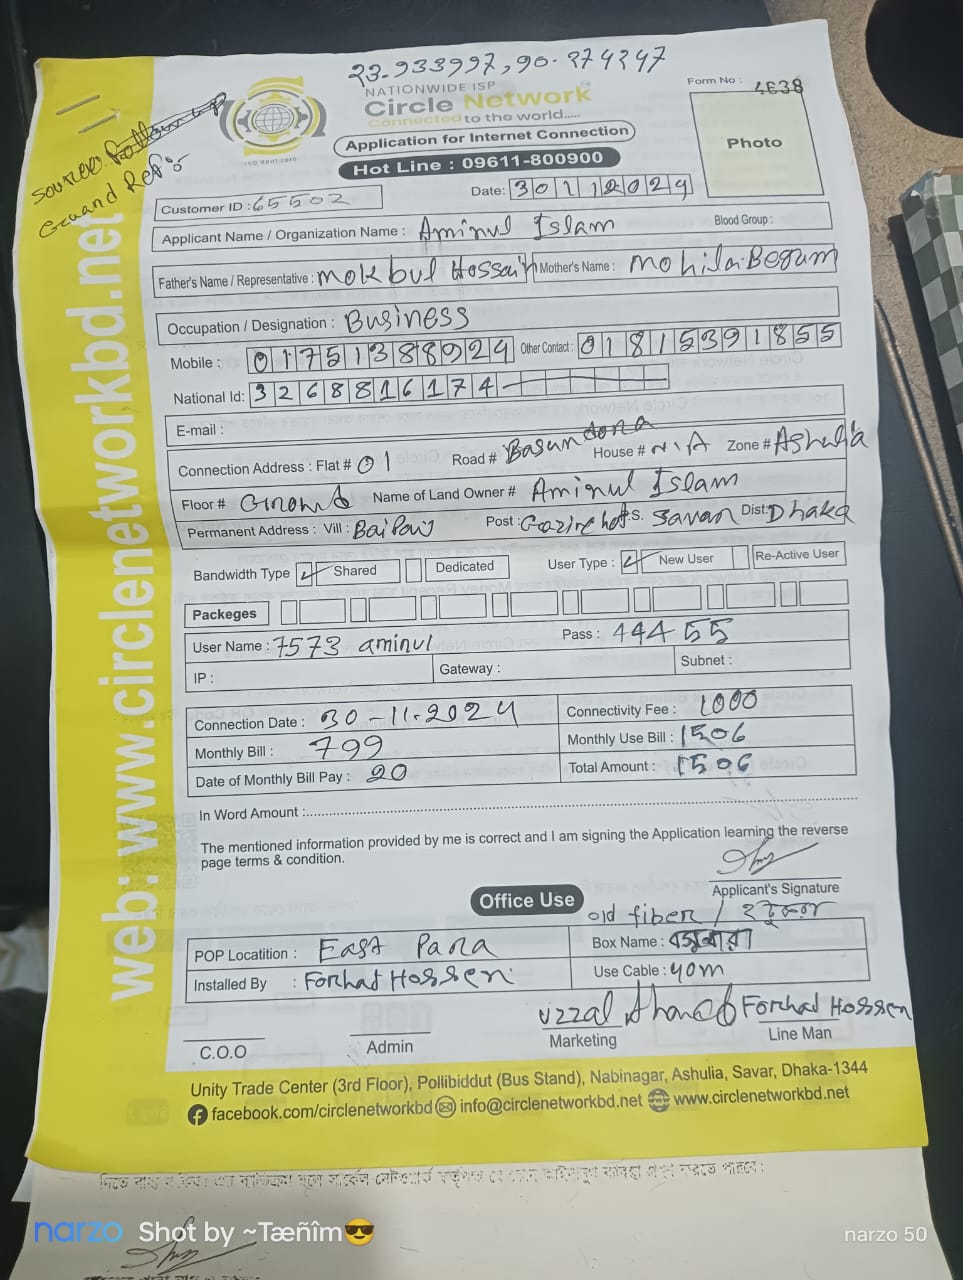 23.933997, 90.274247
NATIONWIDE ISP
Circle Network
Connected to the world.....
Application for Internet Connection
Hot Line : 09611-800900
Form No : 4638
Photo
ISO 9001:2015
Source:
Date: 30112024
Customer ID : 65502
Applicant Name / Organization Name : Aminul Islam Blood Group :
Father's Name / Representative : Mokbul Hossain Mother's Name : Mohila Begum
Occupation / Designation : Business
Mobile : 01751388924 Other Contact : 01815391855
National Id: 3268816174
E-mail :
Connection Address : Flat # 01 Road # Basundora House # N/A Zone # Ashulia
Floor # Ground Name of Land Owner # Aminul Islam
Permanent Address : Vill : Baipail Post : Gazirchat .S. Savar Dist: Dhaka
Bandwidth Type Shared Dedicated User Type : New User Re-Active User
Packeges
User Name : 7573 aminul Pass : 444 55
IP : Gateway : Subnet :
Connection Date : 30-11-2024 Connectivity Fee : 1000
Monthly Bill : 799 Monthly Use Bill : 1506
Date of Monthly Bill Pay : 20 Total Amount : 1506
In Word Amount :
The mentioned information provided by me is correct and I am signing the Application learning the reverse
page terms & condition.
Applicant's Signature
Office Use
old fiber /
POP Locatition : East Para Box Name :
Installed By : Forhad Hossen Use Cable : 40m
Uzzal Forhad Hossen
C.O.O Admin Marketing Line Man
Unity Trade Center (3rd Floor), Pollibiddut (Bus Stand), Nabinagar, Ashulia, Savar, Dhaka-1344
facebook.com/circlenetworkbd info@circlenetworkbd.net www.circlenetworkbd.net
web: www.circlenetworkbd.net
narzo Shot by ~Tæñîm😎 narzo 50